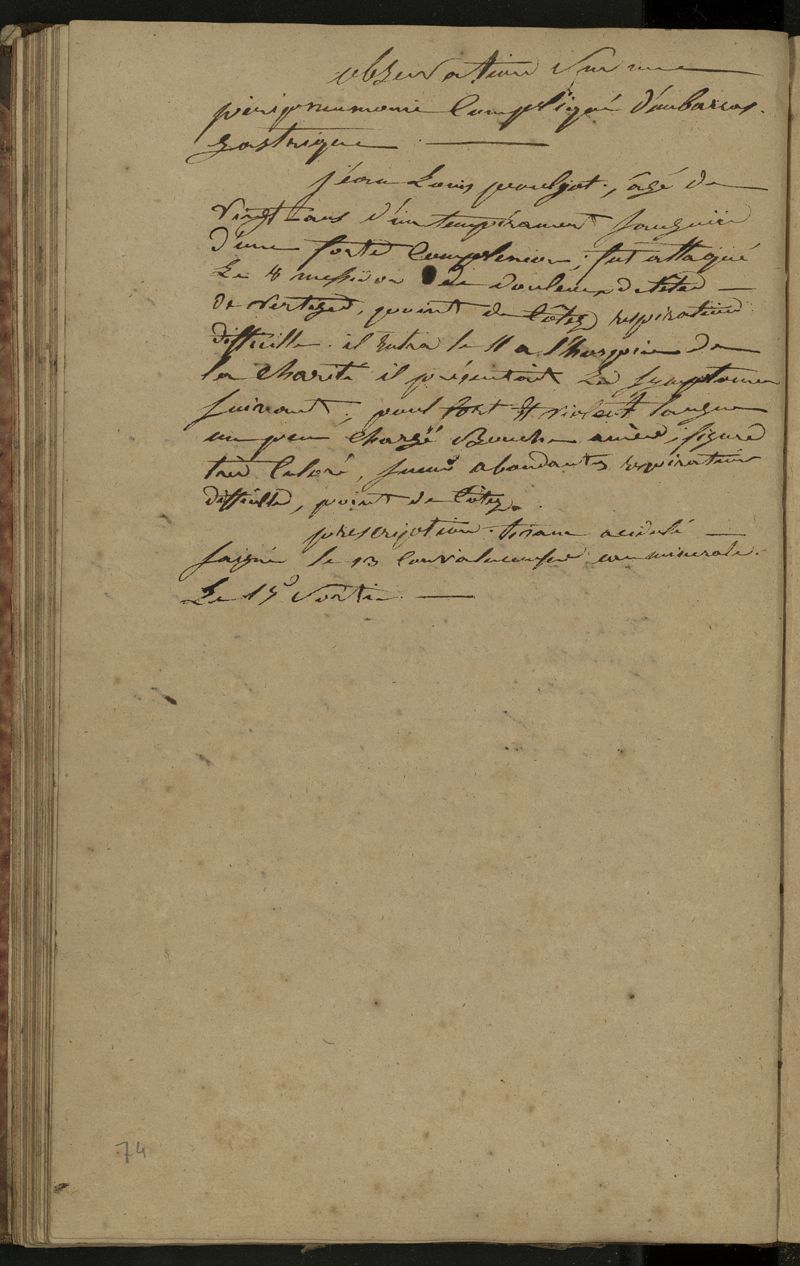 observation Sur une
péripneumonie Compliqué d'embarras
gastrique
jean Louis pouljot, âgé de
vingt ans d'un tempérament sanguin
d'une forte Complexion, fut attaqué
Le 8 messidor de douleur de tete
de vertiges, point de Côtez respiration
difficille. il Entra le 11 a l'hospice de
la Charité il présentoit les symptomes
suivant, poul fort et violent langue
un peu chargé Bouche amère, figure
très Coloré, sueur abondantes respiration
difficilles, point de Côtez.
prescription. tisane acidulé
saignée le 13 Convalescense eau minerale.
Le 15 Sortie
74